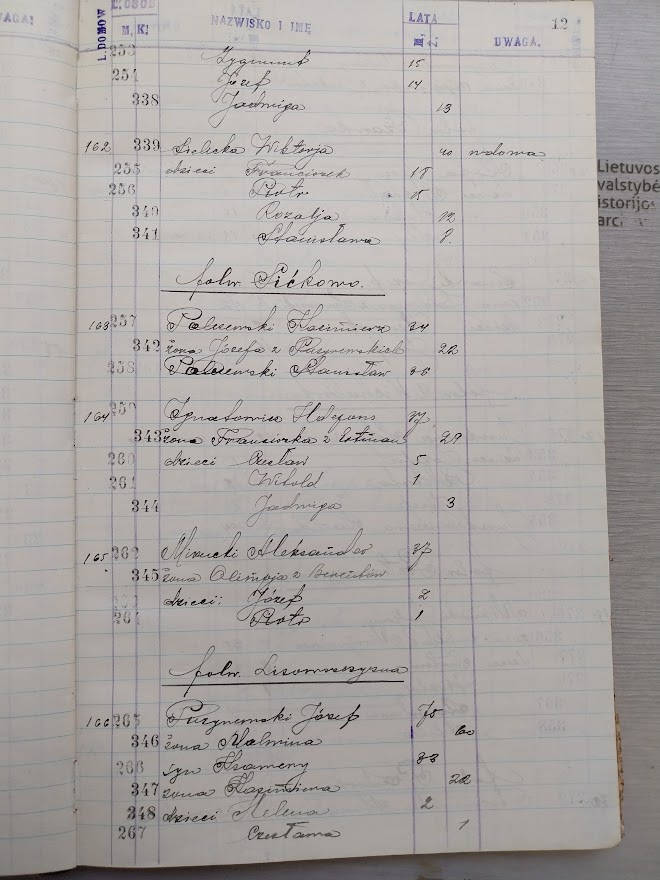 WAGA!
L. DOMÓW L. OSÓB NAZWISKO I IMĘ LATA 12
M. K. M. K. UWAGA.
253 Zygmunt 15
254 Józef 14
338 Jadwiga 13
162 339 Sielicka Wiktorja 40 wdowa
255 dzieci Franciszek 18
256 Piotr 15
340 Rozalja 12
341 Stanisława 8.
folw. Pićkowo.
163 257 Palczewski Kazimierz 34
342 żona Józefa z Puzynewskich 22
258 Palczewski Stanisław 36
164 259 Ignatowicz Ildefons 37
343 żona Franciszka z 29
260 dzieci Czesław 5
261 Witold 1
344 Jadwiga 3
165 262 Mirucki Aleksander 37
345 żona Olimpja z
dzieci: Józef 2
264 Piotr 1
folw.
166 265 Puzynewski Józef 70
346 żona Malwina 60
266 syn 33
347 żona Kazimiera 22
348 dzieci Helena 2
267 Czesława 1
Lietuvos
valstybė
istorijos
arc